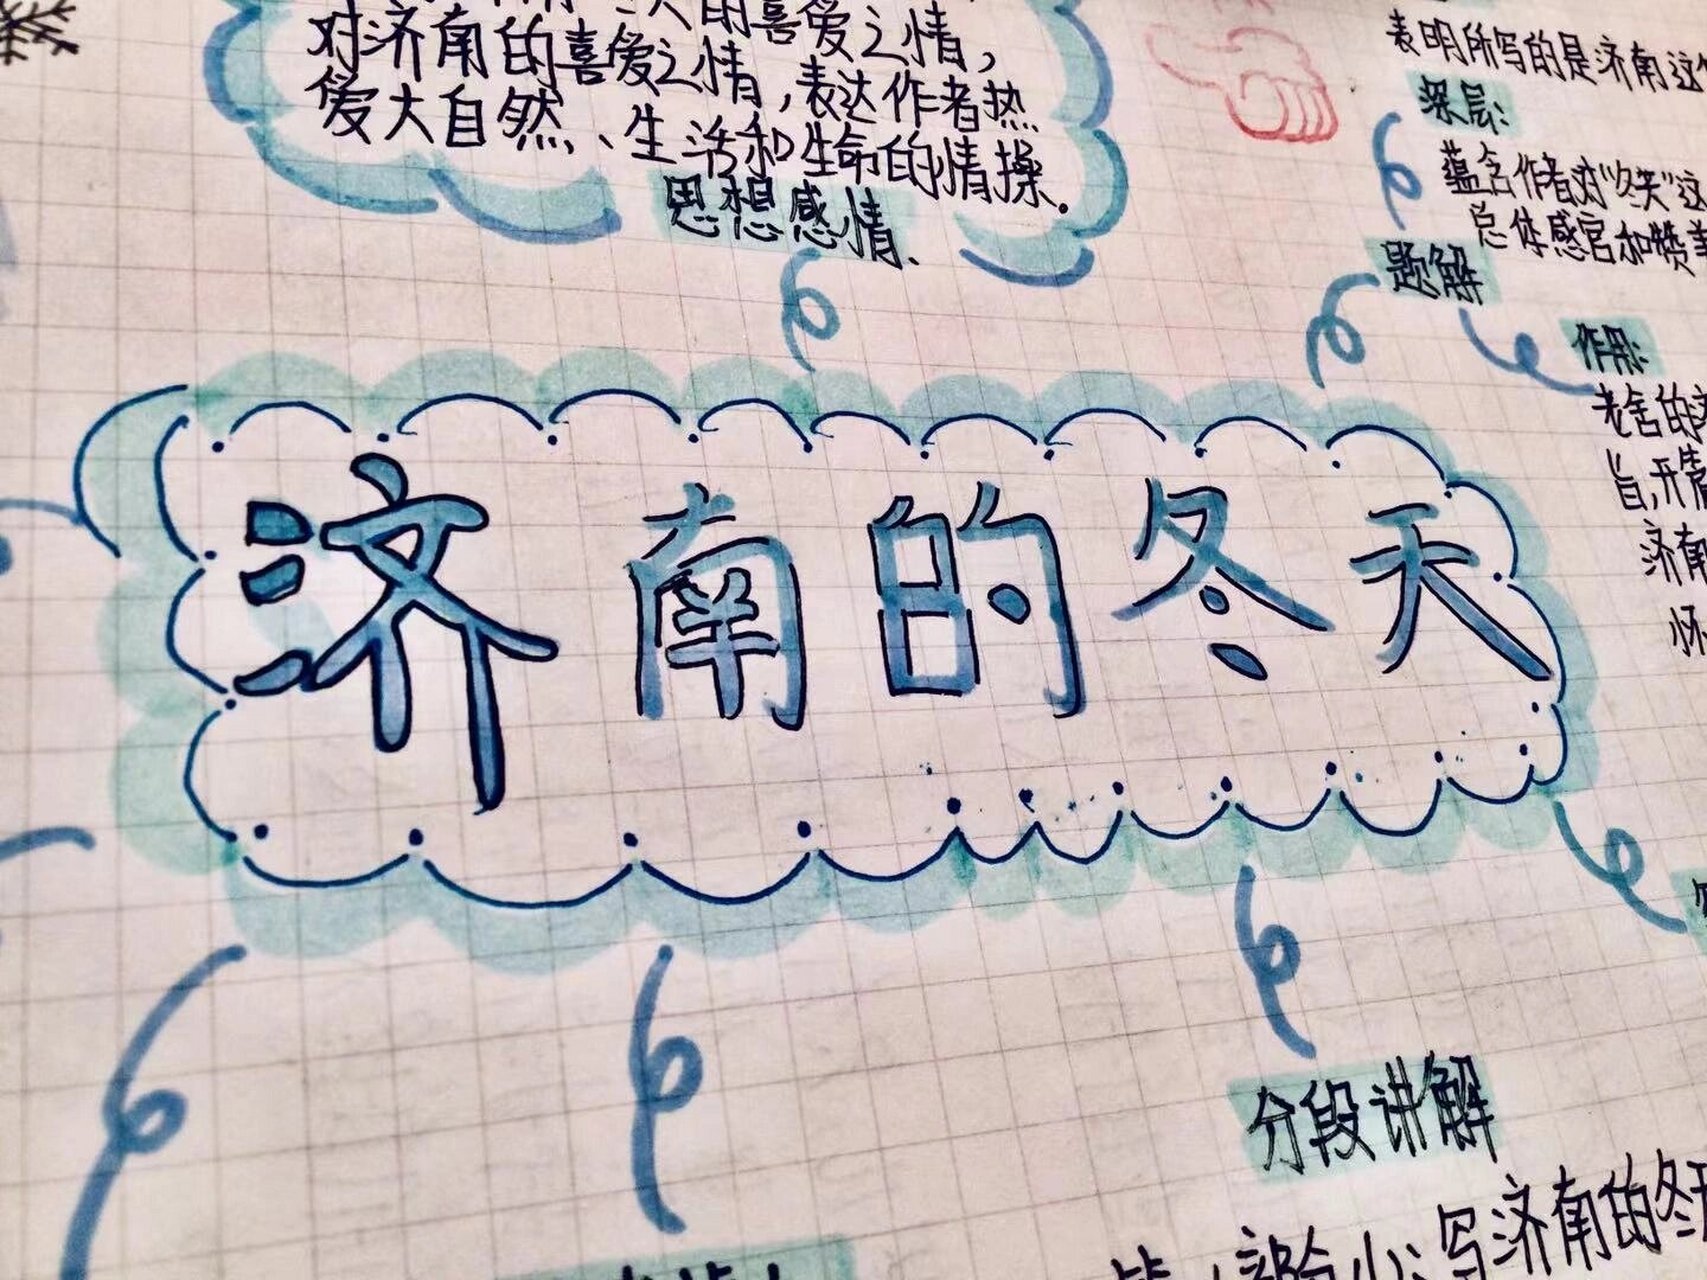 的喜爱之情,
对济南的喜爱之情,表达作者热
爱大自然、生活和生命的情操.
思想感情.
表明所写的是济南这
深层:
蕴含作者对“冬天”这
总体感官和赞美
题解
作用:
老舍的
旨,开篇
济南
怀
济南的冬天
分段讲解
写济南的冬天